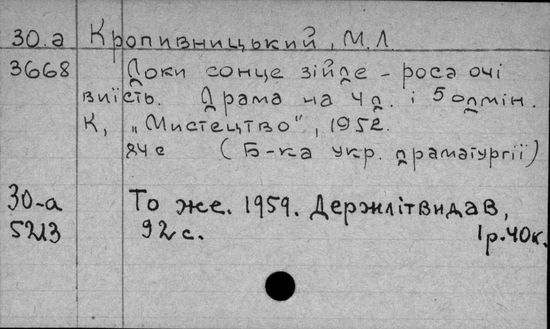 30.а Кропивницький, М.Л.
3668 Доки сонце зійде - роса очі
виїсть. Драма на 4 д. і 5 одмін.
К, „Мистецтво", 1952.
84 с (Б-ка укр. драматургії)
30-а То же. 1959. Держлітвидав,
5213 92 с. 1р.40к.